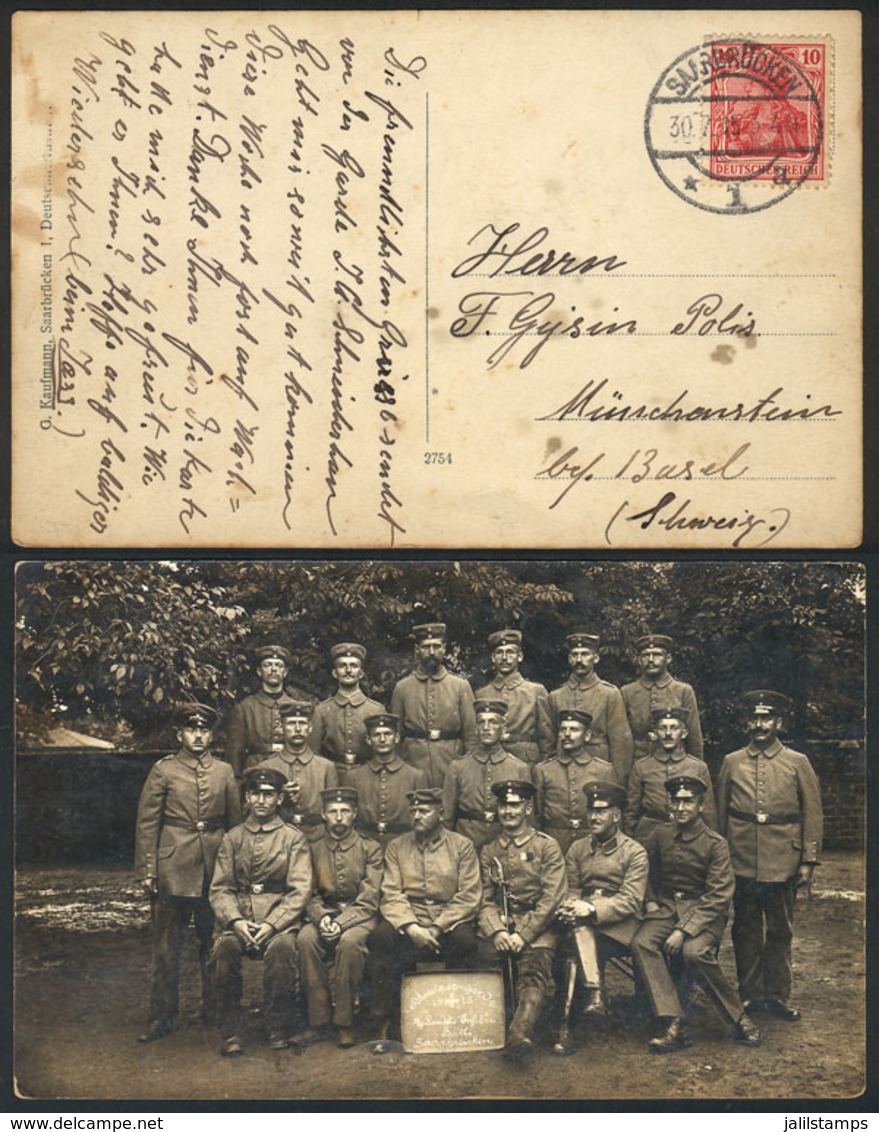 Die freundlichsten Grüsse sendet
von der Garde J. C. Schneiderhan
Geht mir soweit gut kommen
diese Woche noch fort auf Wach=
dienst. Danke Ihnen für die Karte
hatte mich sehr gefreut. Wie
geht es Ihnen? Hoffe auf baldiges
Wiedersehn (beim Jass.)
G. Kaufmann, Saarbrücken 1,
2754
SAARBRÜCKEN
30.7.15
* 1 a
10
DEUTSCHES REICH
Herrn
F. Gysin Polis
Münschenstein
by. Basel
(Schweiz.)
1915
Saarbrücken
jalilstamps